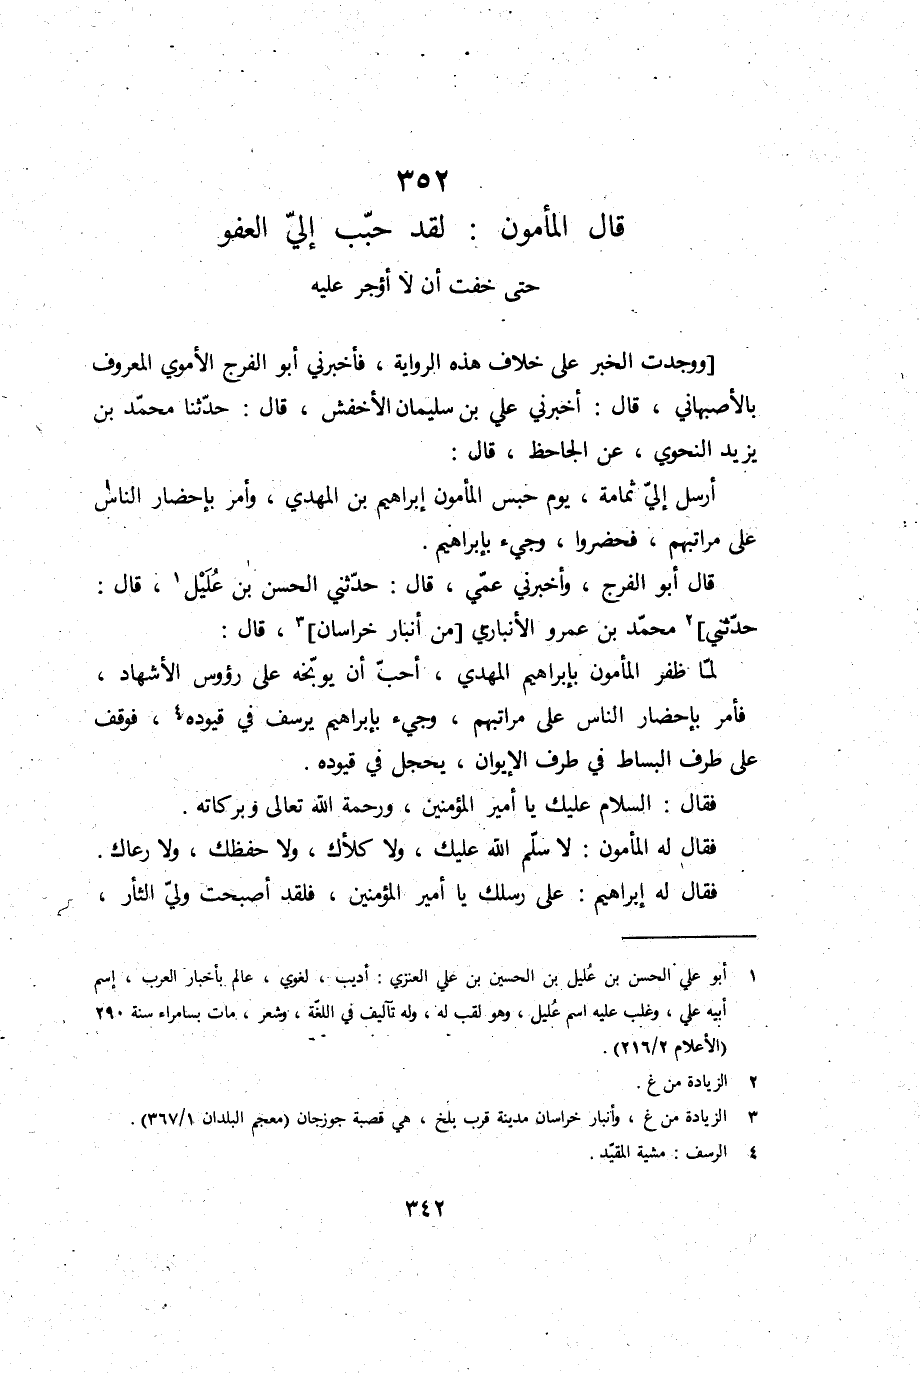 ٣٥٢
قال المأمون : لقد حبّب إليّ العفو
حتى خفت أن لا أؤجر عليه
[ووجدت الخبر على خلاف هذه الرواية ، فأخبرني أبو الفرج الأموي المعروف
بالأصبهاني ، قال : أخبرني علي بن سليمان الأخفش ، قال : حدّثنا محمّد بن
يزيد النحوي ، عن الجاحظ ، قال :
أرسل إليّ ثمامة ، يوم حبس المأمون إبراهيم بن المهدي ، وأمر بإحضار الناس
على مراتبهم ، فحضروا ، وجيء بإبراهيم .
قال أبو الفرج ، وأخبرني عمّي ، قال : حدّثني الحسن بن عُلَيْل ١ ، قال :
حدّثني]٢ محمّد بن عمرو الأنباري [من أنبار خراسان]٣ ، قال :
لمّا ظفر المأمون بإبراهيم المهدي ، أحبّ أن يوبّخه على رؤوس الأشهاد ،
فأمر بإحضار الناس على مراتبهم ، وجيء بإبراهيم يرسف في قيوده٤ ، فوقف
على طرف البساط في طرف الإيوان ، يحجل في قيوده .
فقال : السلام عليك يا أمير المؤمنين ، ورحمة الله تعالى وبركاته .
فقال له المأمون : لا سلّم الله عليك ، ولا كلأك ، ولا حفظك ، ولا رعاك .
فقال له إبراهيم : على رسلك يا أمير المؤمنين ، فلقد أصبحت وليّ الثأر ،
١ أبو علي الحسن بن عُليل بن الحسين بن علي العنزي : أديب ، لغوي ، عالم بأخبار العرب ، إسم
أبيه علي ، وغلب عليه اسم عُليل ، وهو لقب له ، وله تآليف في اللغّة ، وشعر ، مات بسامراء سنة ٢٩٠
(الأعلام ٢١٦/٢) .
٢ الزيادة من غ .
٣ الزيادة من غ ، وأنبار خراسان مدينة قرب بلخ ، هي قصبة جوزجان (معجم البلدان ٣٦٧/١) .
٤ الرسف : مشية المقيّد .
٣٤٢